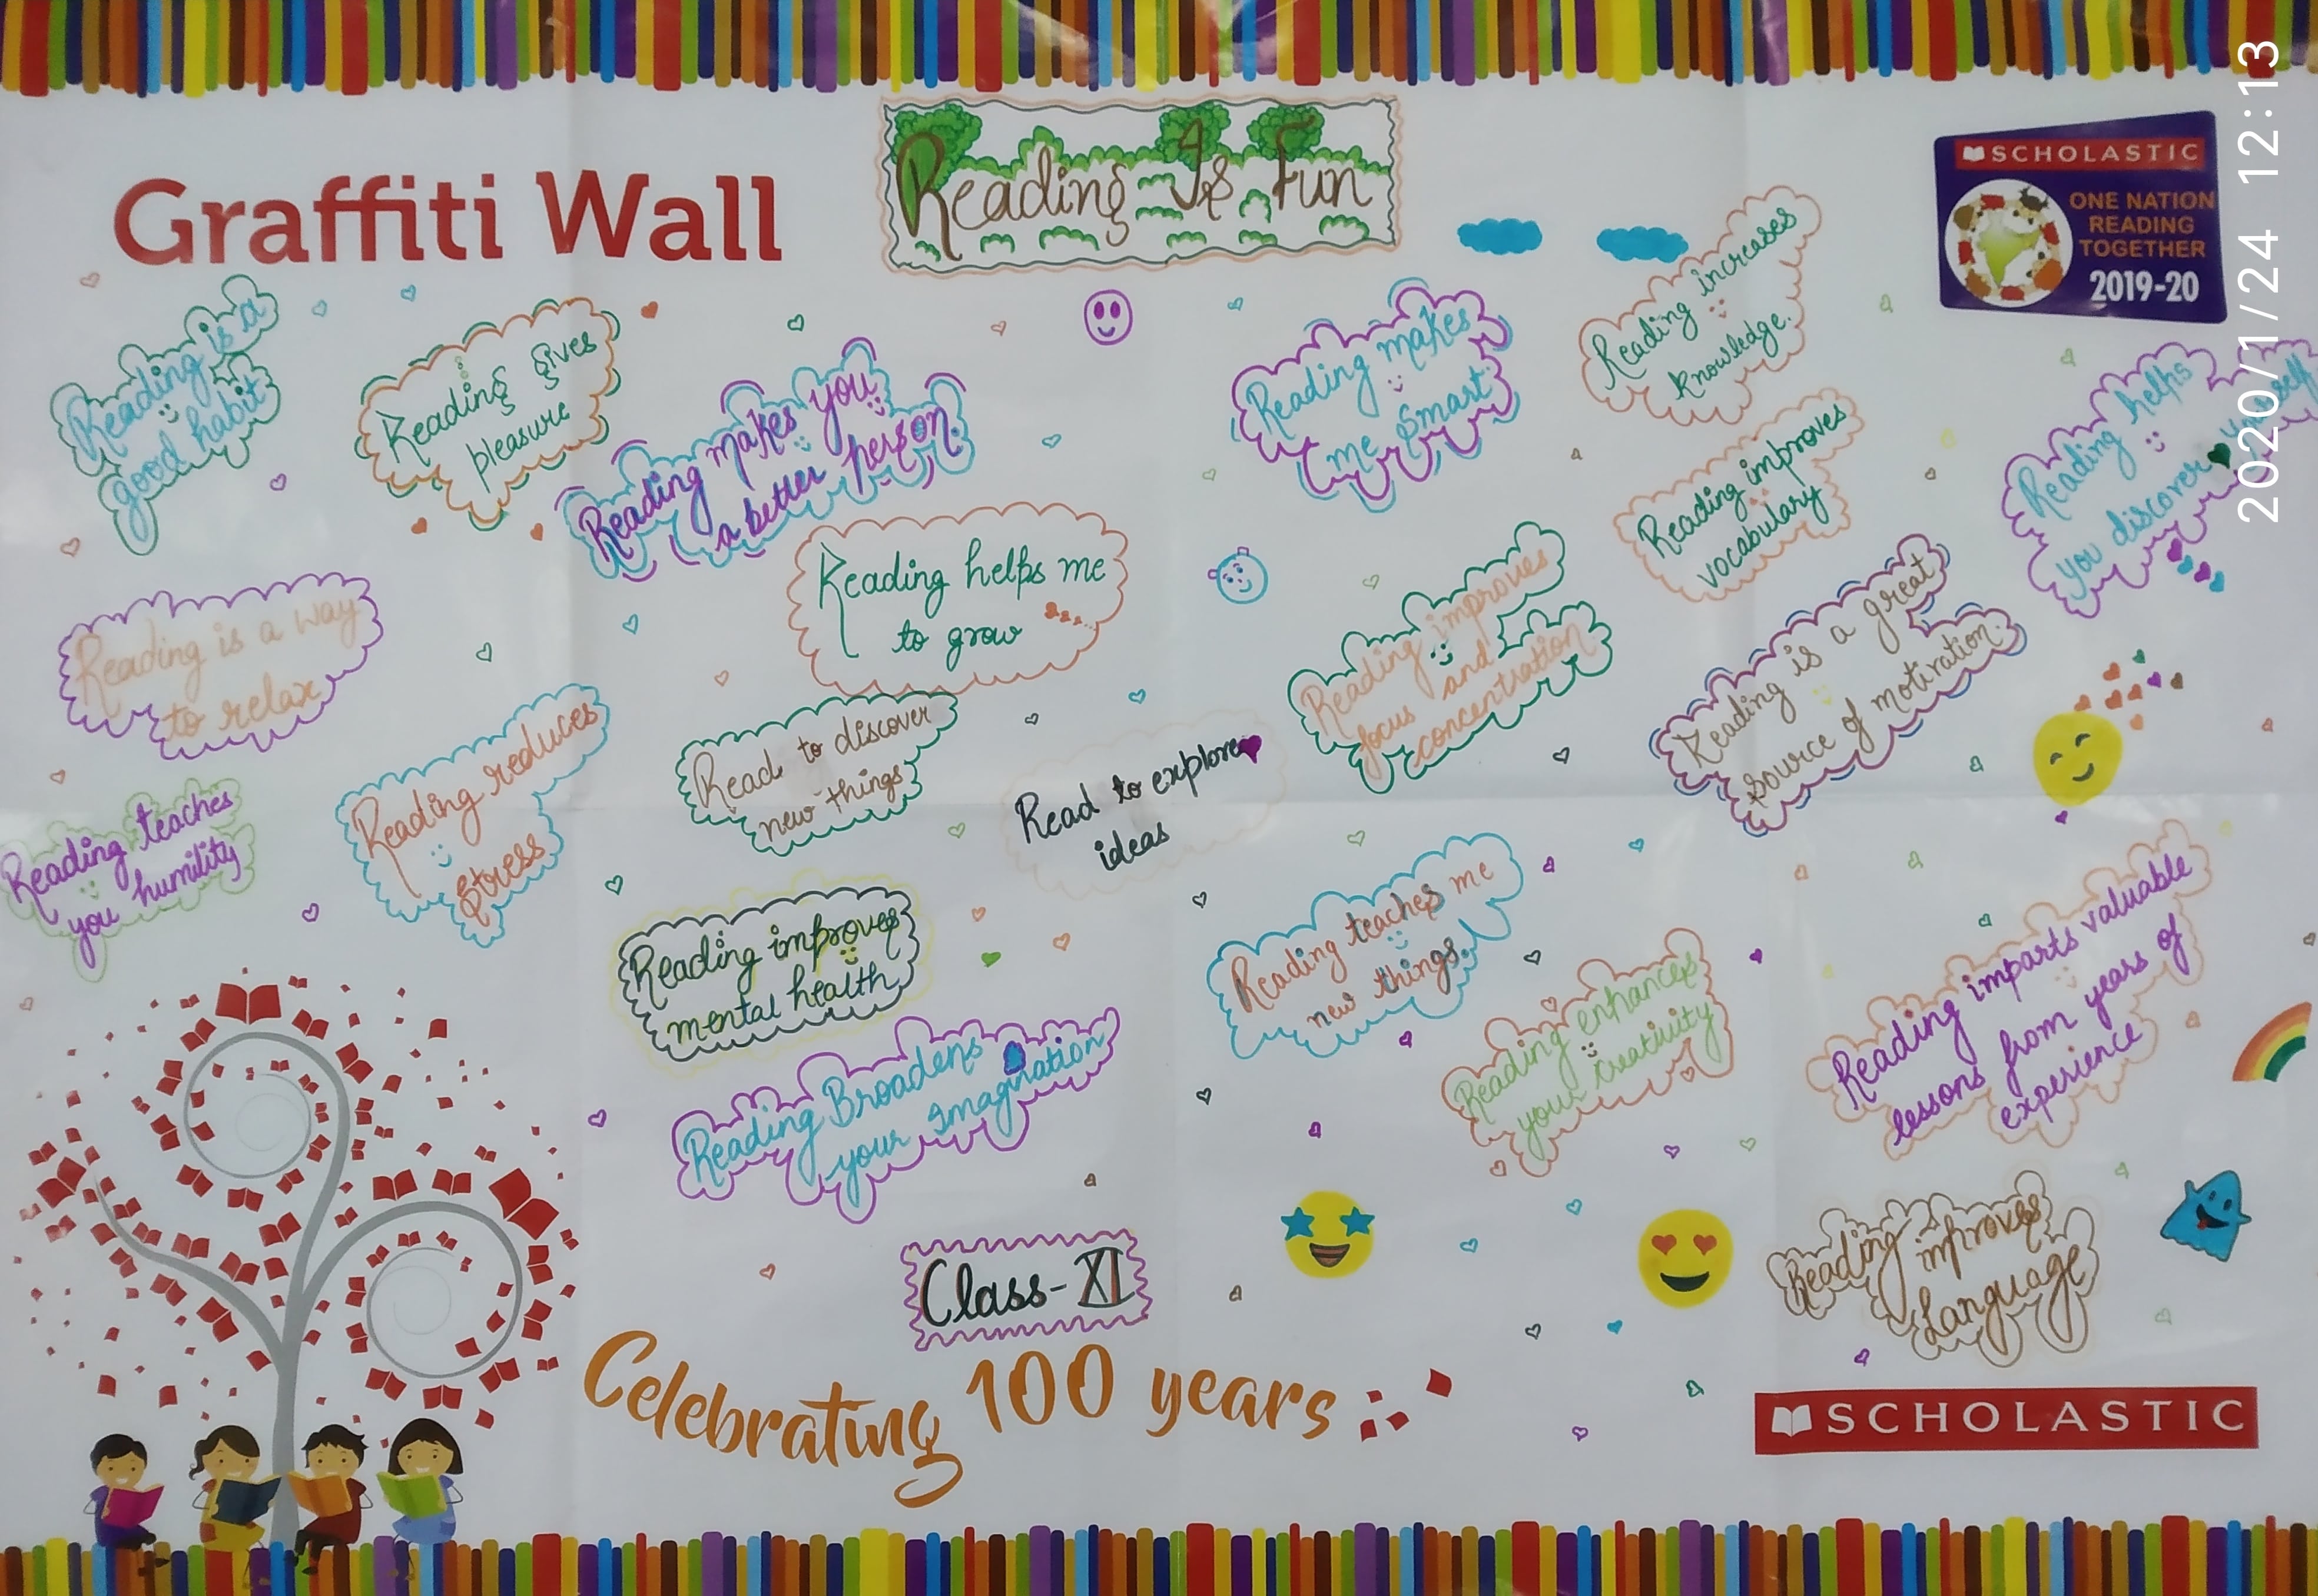 Graffiti Wall
Reading Is Fun
SCHOLASTIC
ONE NATION
READING
TOGETHER
2019-20
2020/1/24 12:13
Reading is a
good habit
Reading gives
pleasure
Reading makes you
a better person.
Reading makes
me Smart
Reading increases
knowledge.
Reading improves
vocabulary
Reading helps
you discover Yourself
Reading is a way
to relax
Reading helps me
to grow ....
Reading improves
focus and
concentration
Reading is a great
source of motivation.
Reading teaches
you humility
Reading reduces
Stress
Read to discover
new things
Read to explore
ideas
Reading improves
mental health
Reading teaches me
new things.
Reading enhances
your creativity
Reading imparts valuable
lessons from years of
experience
Reading Broadens
your Imagination
Reading improves
Language
Class-XI
Celebrating 100 years
SCHOLASTIC